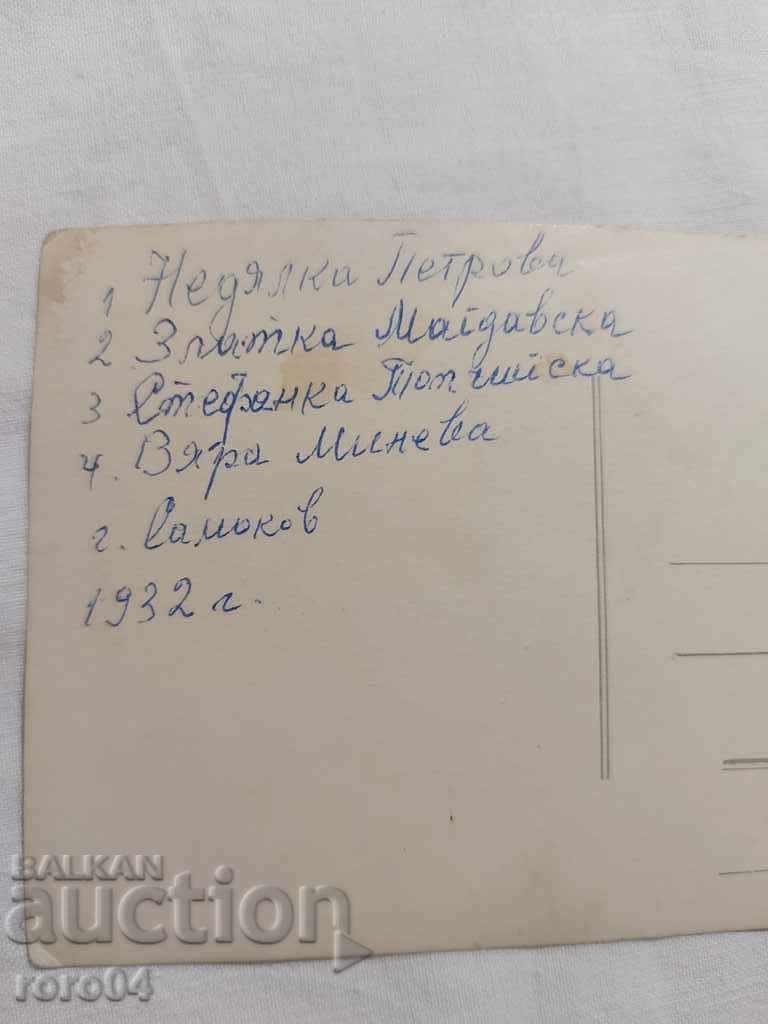 1 Недялка Петрова
2. Златка Майдавска
3 Стефанка Топчийска
4. Вяра Минева
г. Самоков
1932 г.
BALKAN
auction
roro04